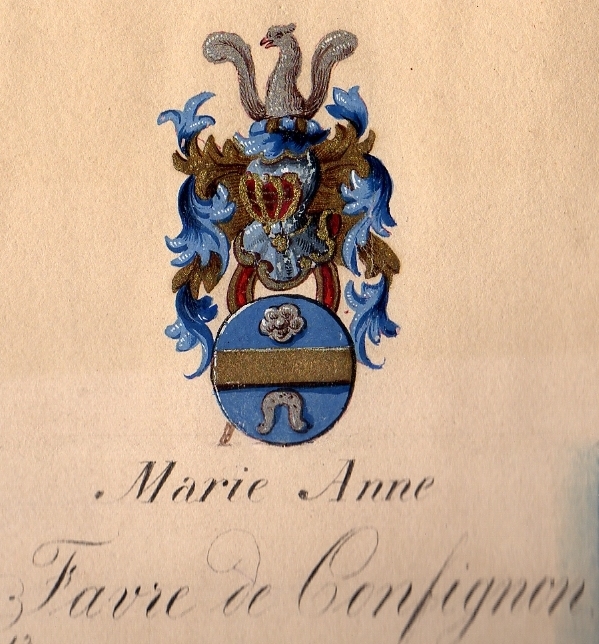 Marie Anne
Favre de Confignon